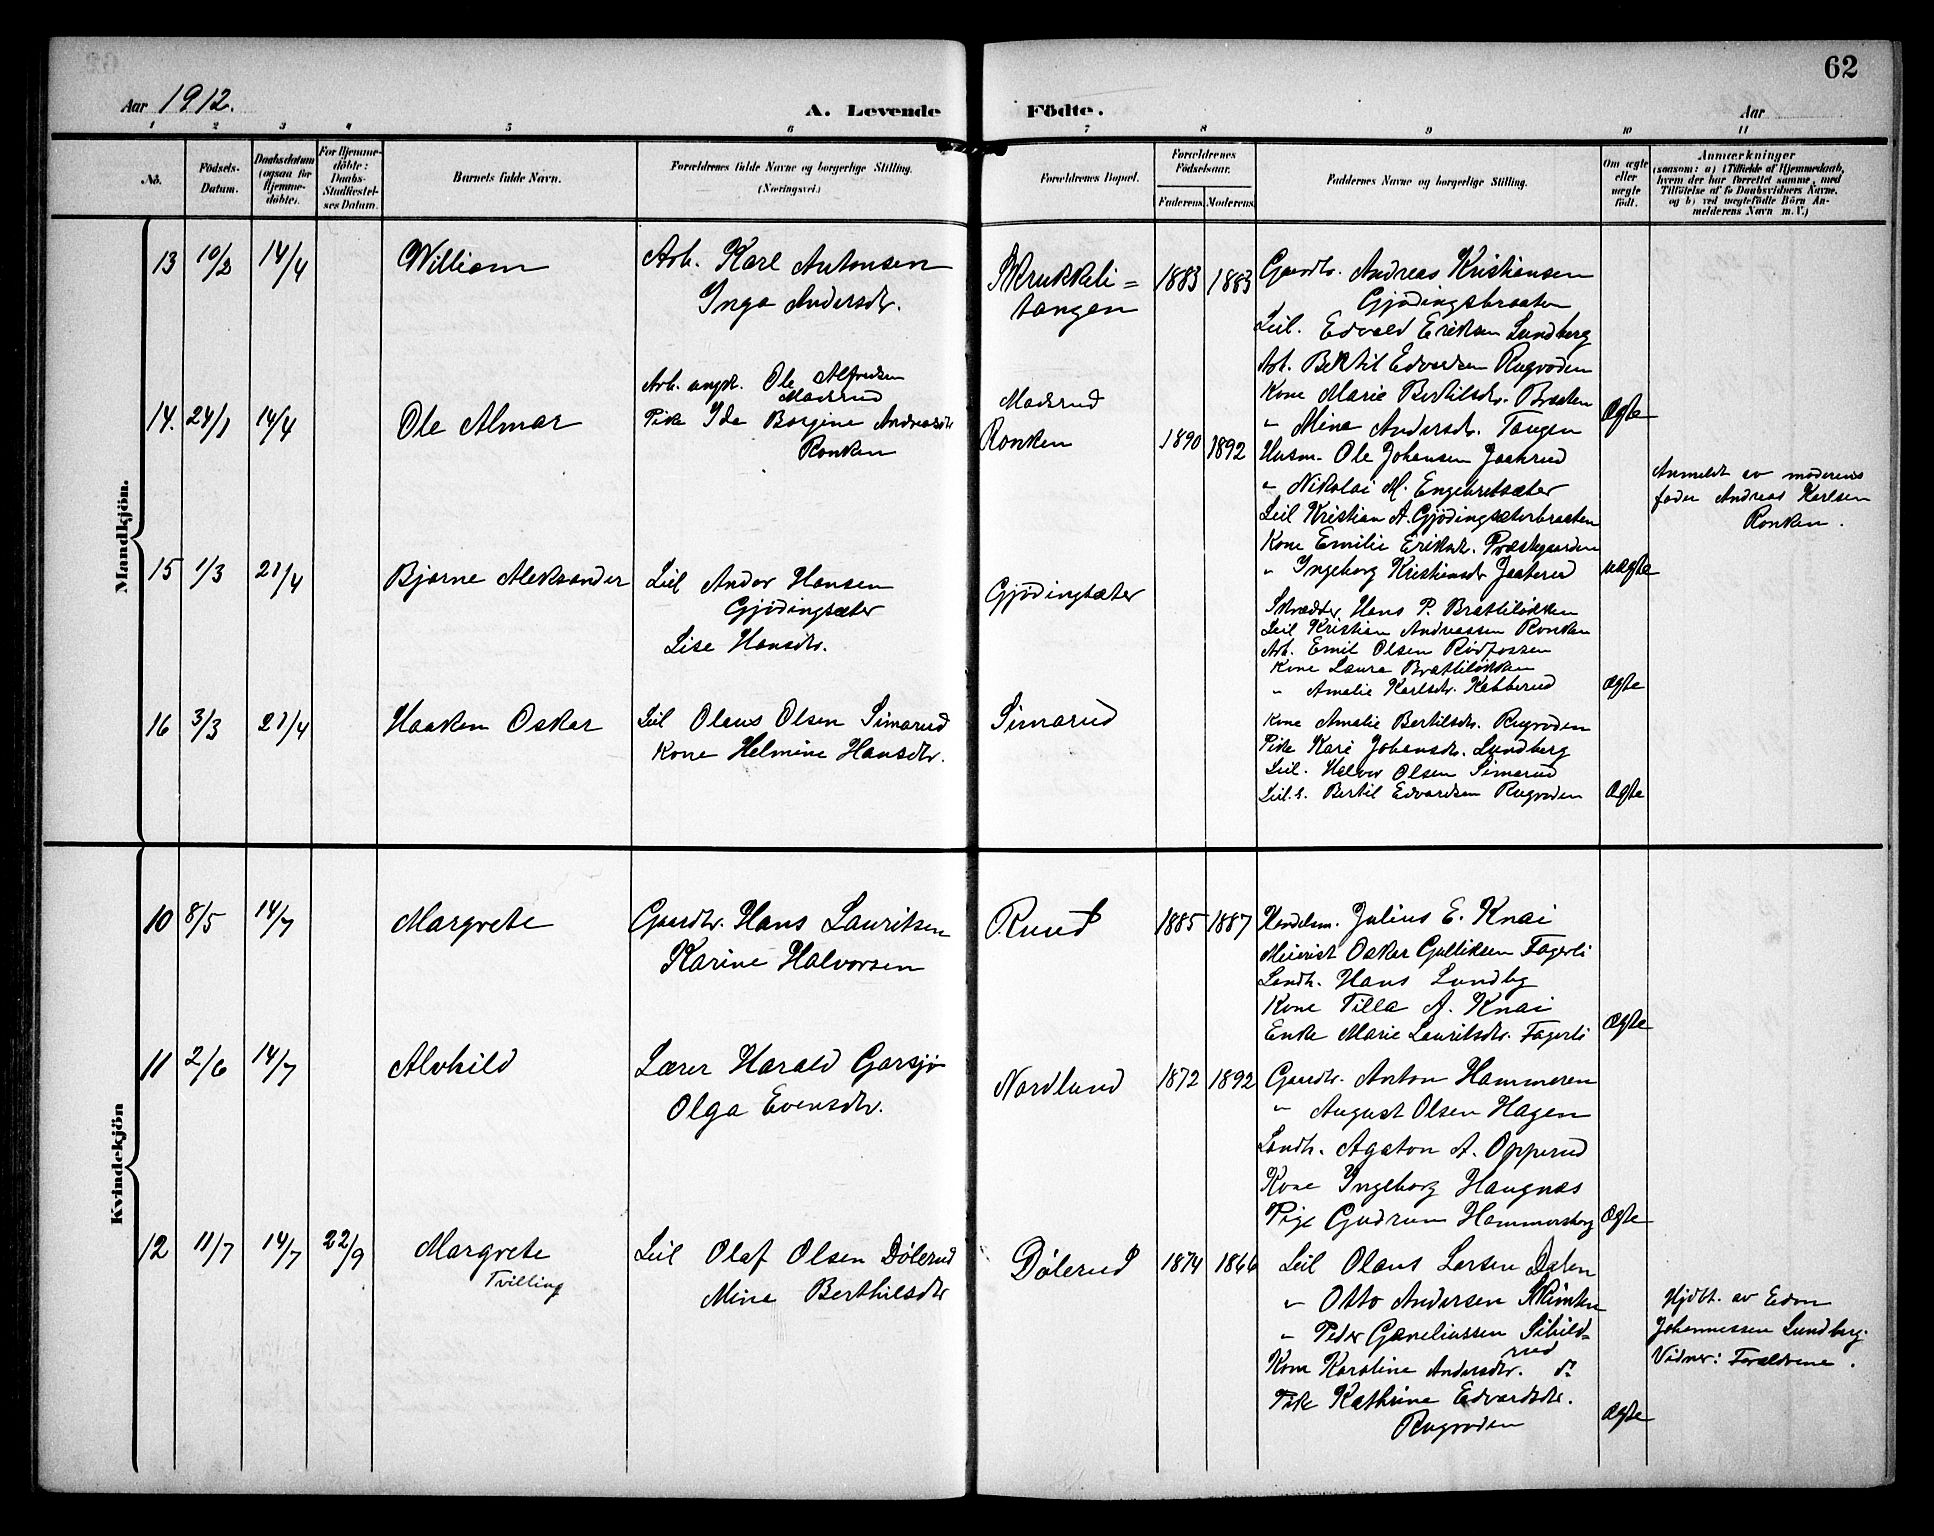 62
Aar 1912.
A. Levende Födte.
Aar
1 2 3 4 5 6 7 8 9 10 11
No.
Födsels-
Datum.
Daabsdatum
(ogsaa for
Hjemme-
döbte).
For Hjemme-
döbte:
Daabs-
Stadfæstel-
ses Datum.
Barnets fulde Navn.
Forældrenes fulde Navne og borgerlige Stilling.
(Næringsvei.)
Forældrenes Bopæl.
Forældrenes
Födselsaar.
Faderens Moderens
Faddernes Navne og borgerlige Stilling.
Om ægte
eller
uægte
født.
Anmærkninger
(saasom: a) i Tilfælde af Hjemmedaab,
hvem der har forrettet samme, med
Tilföielse af to Daabsvidners Navne,
og b) ved uægtefödte Börn An-
melderens Navn m. V.)
Mandkjön.
13 10/2 14/4 William
Arb. Karl Antonsen
Inga Andersdtr.
Skrukkeli=
tangen
1883 1883
Gaardbr. Andreas Kristiansen
Gjødingsbraaten
Leil. Edvald Eriksen Lundberg
Arb. Bertil Edvardsen Rugvoden
Kone Marie Bertilsdtr. Braaten
" Mina Andersdtr. Tangen
Ægte
14. 24/1 14/4 Ole Almar
Arb. ungk. Ole Alfredsen
Maderud
Pike Ida Borgine Andreasdtr
Ronken
Maderud
Ronken
1890 1892
Husm. Ole Johansen Jaahrud
" Nikolai M. Engebretsæter
Leil Kristian A. Gjødingsæterbraaten
Kone Emilie Eriksdtr. Præstegaarden
" Ingeborg Kristiansdtr Jaaterud
uægte
Anmeldt av moderens
fader Andreas Karlsen
Ronken.
15 1/3 21/4 Bjarne Aleksander
Leil Andor Hansen
Gjødingsæter
Lise Hansdtr.
Gjødingsæter
Skrædder Hans P. Brattiløkken
Leil Kristian Andreassen Ronken
Arb. Emil Olsen Rødfossen
Kone Laura Brattiløkken
" Amalie Karlsdtr. Kabberud
Ægte
16 3/3 21/4 Haakon Oskar
Leil Olaus Olsen Simarud
Kone Helmine Hansdtr.
Simarud
Kone Amalie Bertilsdtr. Rugvoden
Pike Kari Johansdtr. Lundberg
Leil. Halvor Olsen Simarud
Leil.s. Bertil Edvardsen Rugvoden
Ægte
Kvindekjön
10 8/5 14/7 Margrete
Gaardbr. Hans Lauritsen
Karine Halvorsen
Ruud
1885 1887
Handelsm. Julius E. Knai
Meierist Oskar Gulliksen Fagerli
Landh. Hans Lundby
Kone Tilla A. Knai
Enke Marie Lauritsdtr. Fagerli
Ægte
11 2/6 14/7 Alvhild
Lærer Harald Garsjø
Olga Evensdtr.
Nordlund
1872 1892
Gaardbr. Anton Hammeren
" August Olsen Hagen
Landh. Agaton A. Opperud
Kone Ingeborg Haugnæs
Pige Gudrun Hammersborg
Ægte
12 11/7 14/7 22/9 Margrete
Tvilling
Leil Olaf Olsen Dølerud
Mina Berthilsdtr
Dølerud
1874 1866
Leil Olaus Larsen Dalen
" Otto Andersen Skimten
" Peder Corneliussen Sibild-
rud
Kone Karoline Andersdtr. do
Pike Kathrine Edvardsdtr.
Rugvoden
Ægte
Hjdbt. av Edon
Johannessen Lundberg.
Vidner: Forældrene.